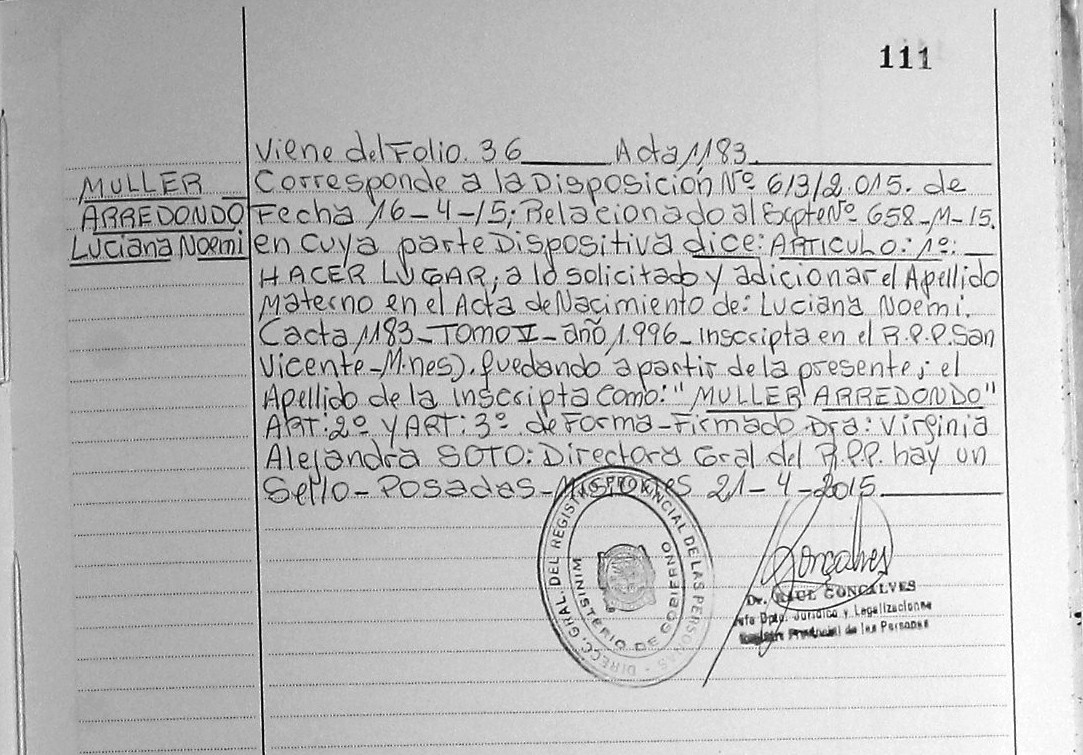 111
Viene del Folio. 36 Acta 1183.
MULLER
ARREDONDO
Luciana Noemi
Corresponde a la Disposición Nº 613/2.015. de
Fecha 16-4-15; Relacionado al Expte Nº 658-M-15.
en cuya parte Dispositiva dice: ARTICULO: 1º:
HACER LUGAR, a lo solicitado y adicionar el Apellido
Materno en el Acta de Nacimiento de: Luciana Noemi.
Cacta 1183-TOMO V-año 1.996-Inscripta en el R.P.P. San
Vicente-M.nes). quedando a partir de la presente; el
Apellido de la Inscripta como: "MULLER ARREDONDO"
ART: 2º Y ART: 3º de Forma-Firmado Dra: Virginia
Alejandra SOTO: Directora Gral del R.P.P. hay un
Sello-Posadas-Misiones 21-4-2015.
DIRECC. GRAL. DEL REGISTRO PROVINCIAL DE LAS PERSONAS
MINISTERIO DE GOBIERNO
Gonçalves
Dr. RAUL GONCALVES
Jefe Dpto. Jurídico y Legalizaciones
Registro Provincial de las Personas